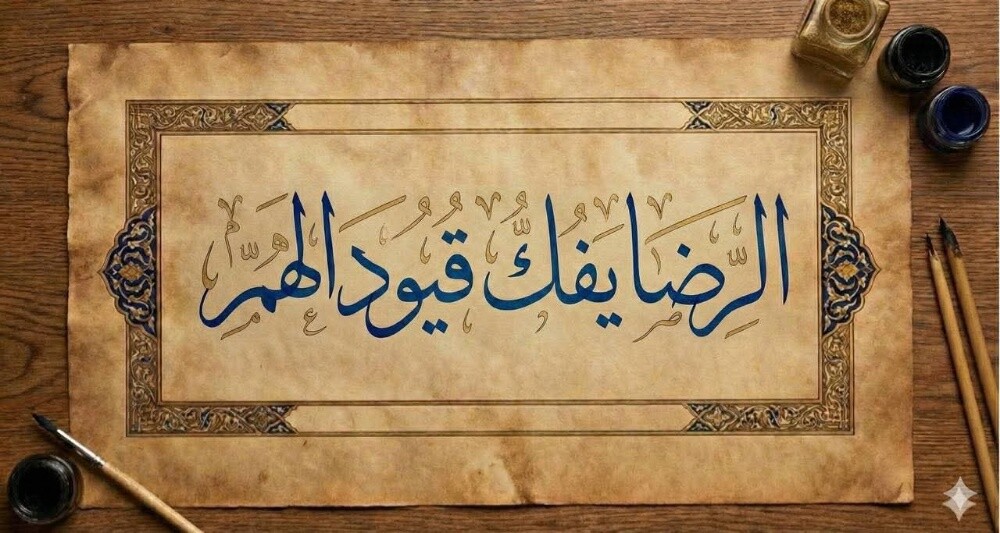 الرِّضَا يَفُكُّ قُيُودَ الهمّ